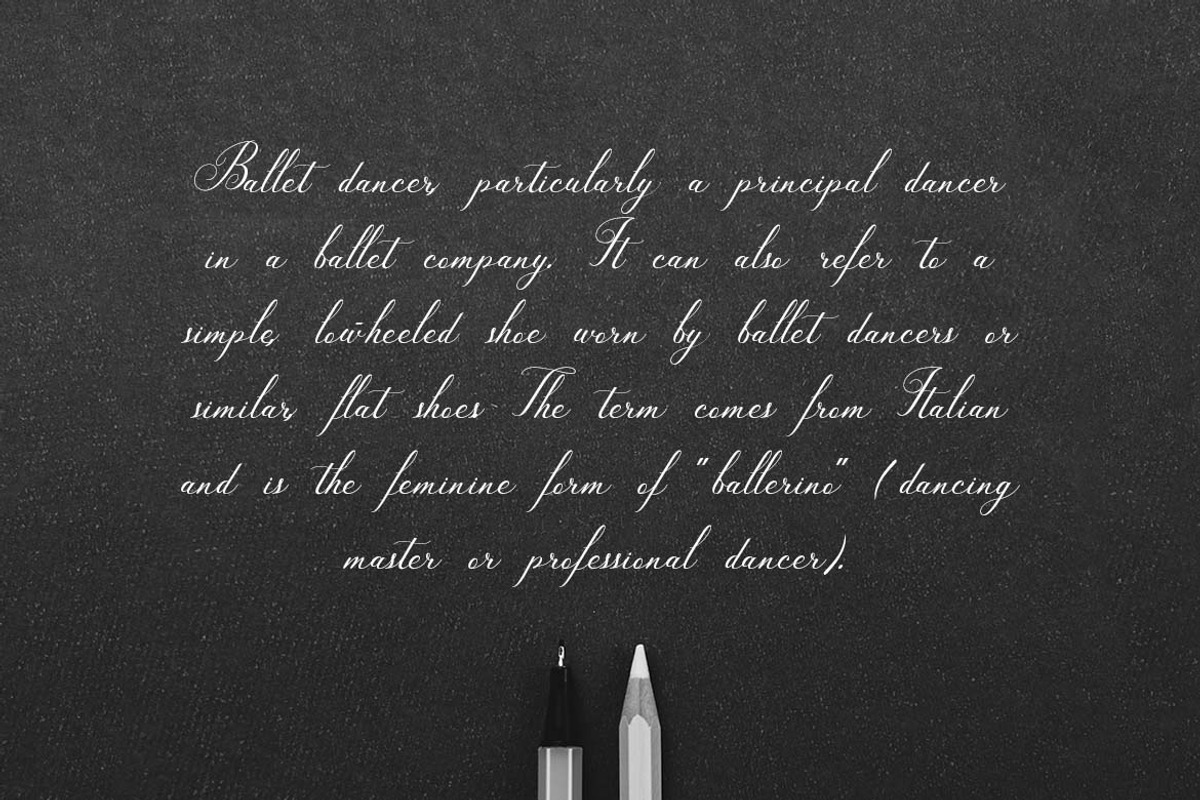 Ballet dancer, particularly a principal dancer
in a ballet company. It can also refer to a
simple, low-heeled shoe worn by ballet dancers or
similar, flat shoes The term comes from Italian
and is the feminine form of "ballerino" (dancing
master or professional dancer).